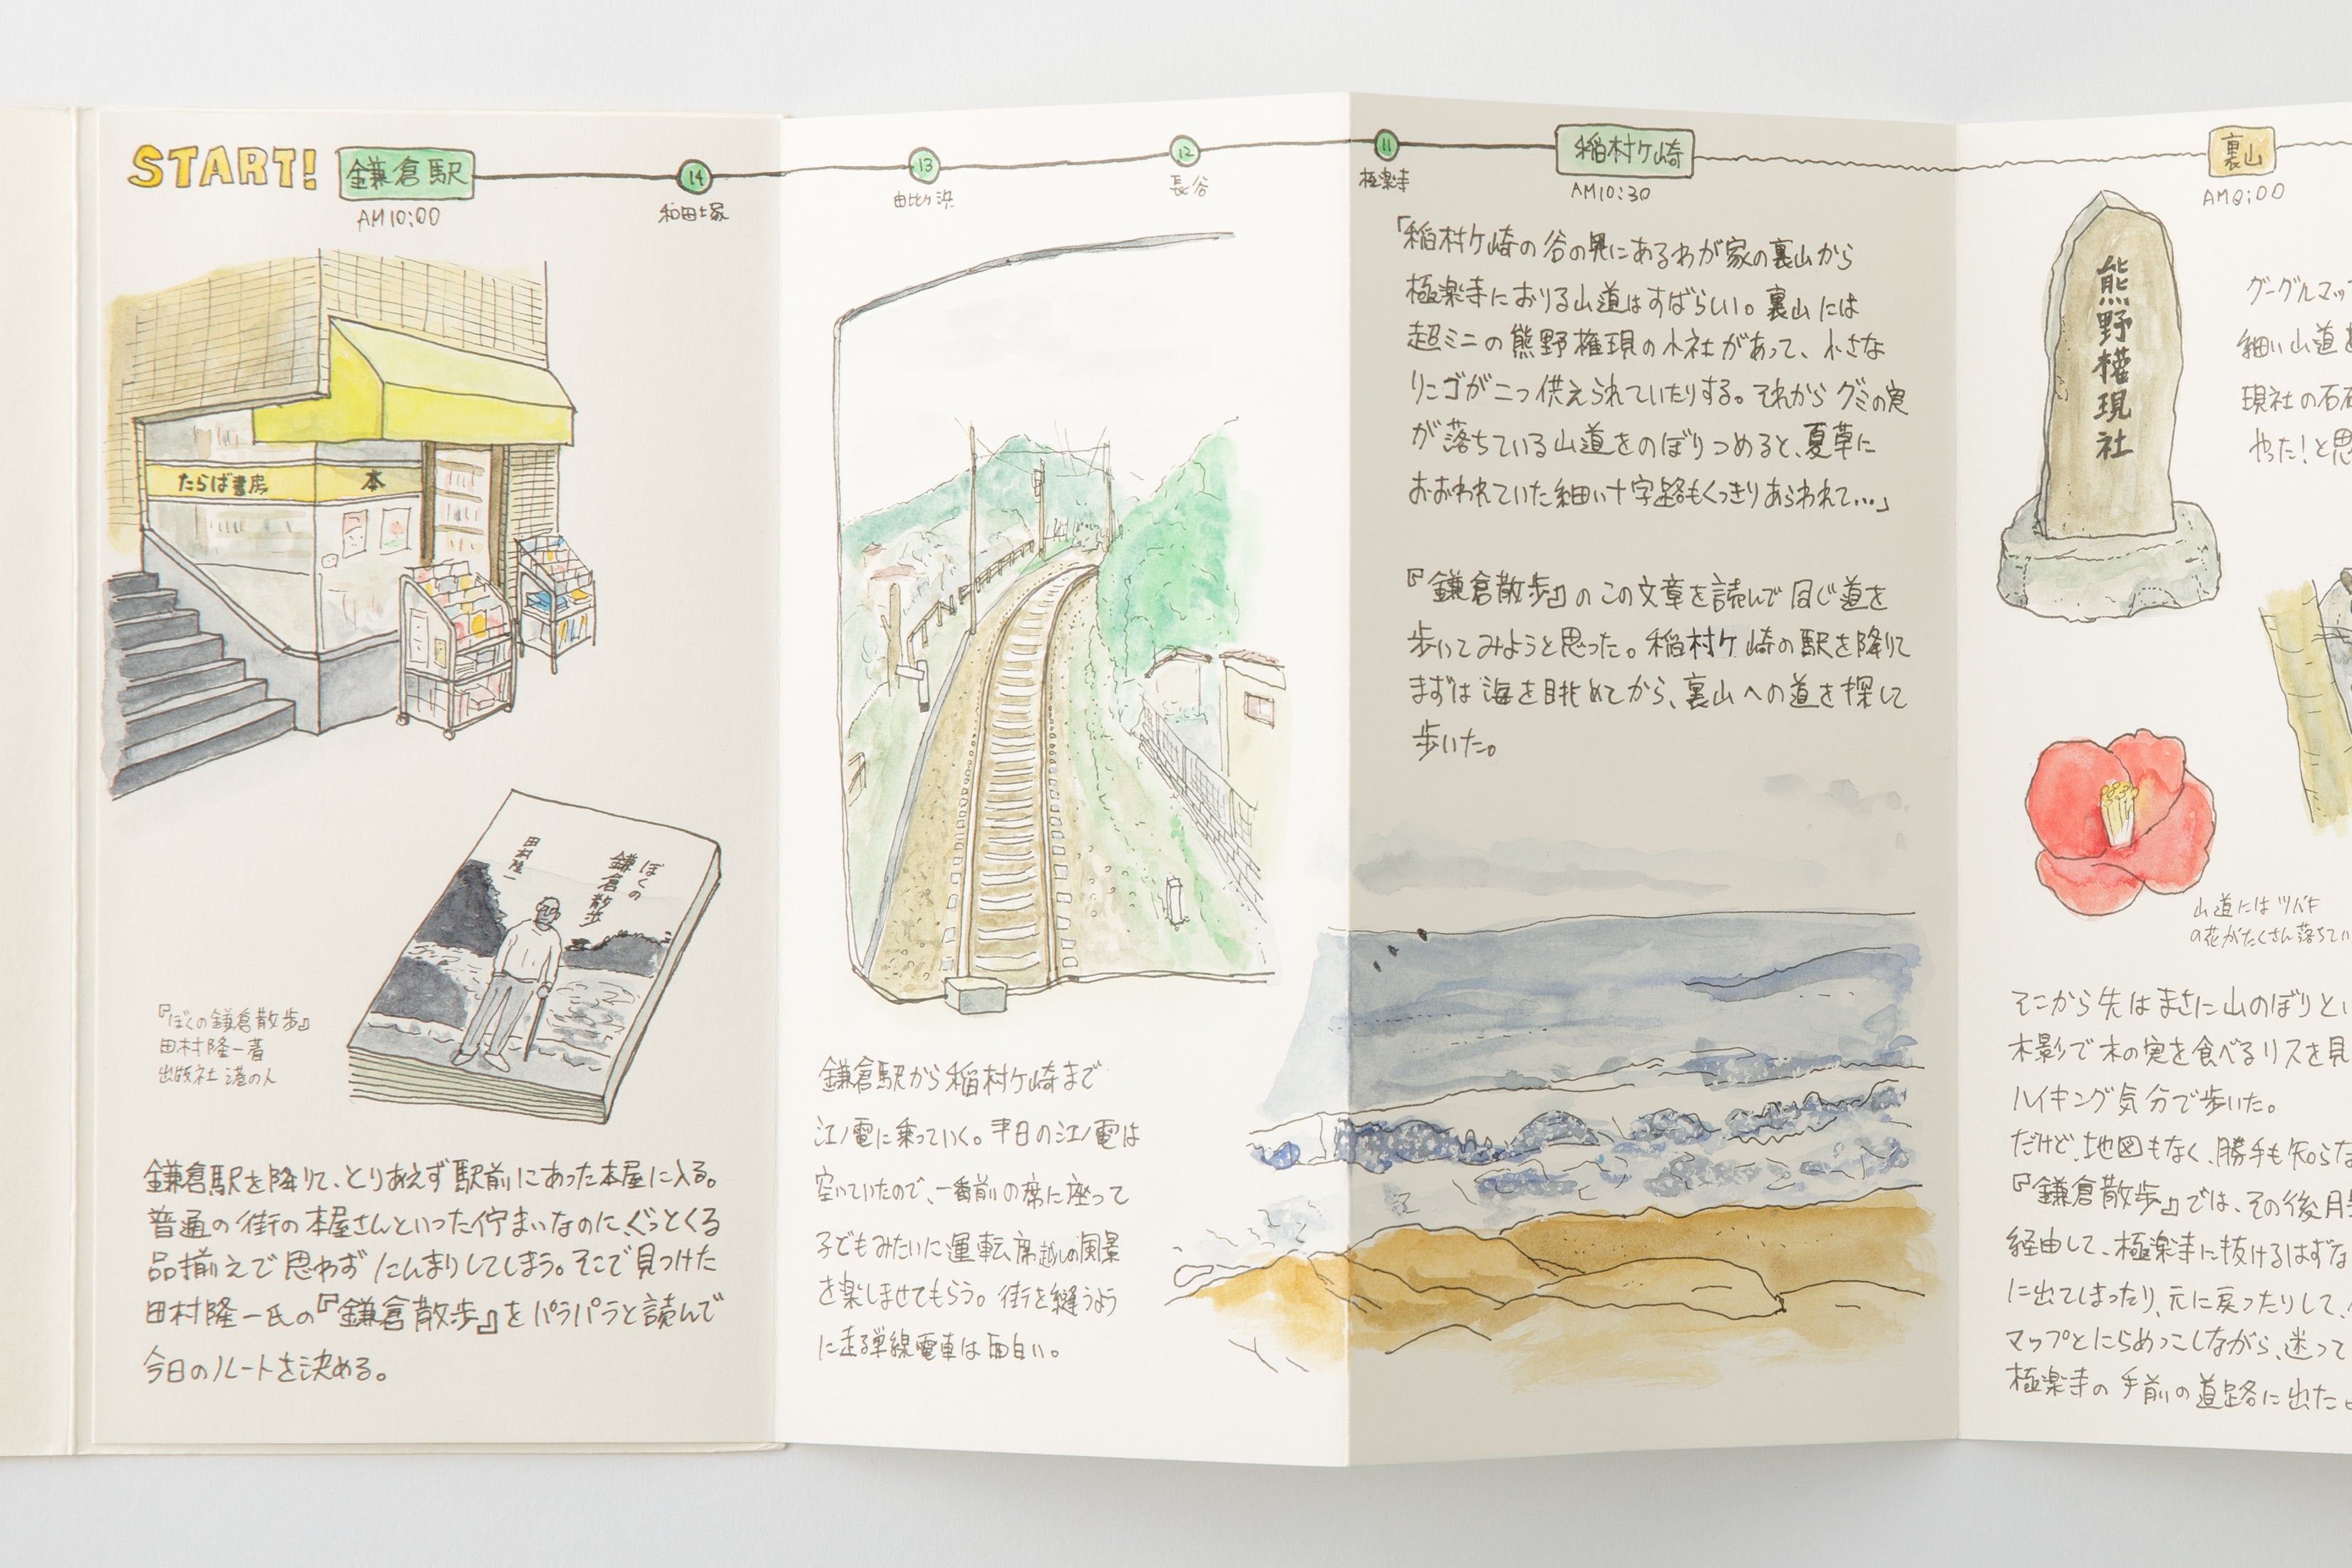 START!
鎌倉駅
AM10:00
14
和田塚
13
由比ヶ浜
12
長谷
11
極楽寺
稲村ケ崎
AM10:30
裏山
たらば書房
本
ぼくの
鎌倉散歩
田村隆一
『ぼくの鎌倉散歩』
田村隆一著
出版社 港の人
鎌倉駅を降りて、とりあえず駅前にあった本屋に入る。
普通の街の本屋さんといった佇まいなのに、ぐっとくる
品揃えで思わずにんまりしてしまう。そこで見つけた
田村隆一氏の『鎌倉散歩』をパラパラと読んで
今日のルートを決める。
鎌倉駅から稲村ケ崎まで
江ノ電に乗っていく。平日の江ノ電は
空いていたので、一番前の席に座って
子どもみたいに運転席越しの風景
を楽しませてもらう。街を縫うよう
に走る単線電車は面白い。
「稲村ケ崎の谷の奥にあるわが家の裏山から
極楽寺におりる山道はすばらしい。裏山には
超ミニの熊野権現の小社があって、小さな
リンゴが二つ供えられていたりする。それからグミの実
が落ちている山道をのぼりつめると、夏草に
おおわれていた細い十字路もくっきりあらわれて…」
『鎌倉散歩』のこの文章を読んで同じ道を
歩いてみようと思った。稲村ケ崎の駅を降りて
まずは海を眺めてから、裏山への道を探して
歩いた。
熊野権現社
グーグルマッ
細い山道
現社の石
やった!と思
山道にはツバキ
の花がたくさん落ちてい
そこから先はまさに山のぼりとい
木影で木の実を食べるリスを見
ハイキング気分で歩いた。
だけど、地図もなく、勝手も知らな
『鎌倉散歩』では、その後月
経由して、極楽寺に抜けるはずな
に出てしまったり、元に戻ったりして、
マップとにらめっこしながら、迷って
極楽寺の手前の道路に出た